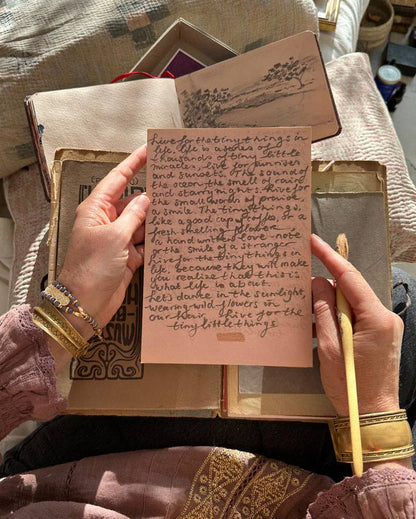 live for the tiny things in
life. life is a series of
thousands of tiny little
miracles. Live for sunrises
and sunsets. The sound of
the ocean, the smell of rain
and starry nights. Live for
the small words of praise
a smile. The tiny things,
like a good cup of coffee, or a
fresh smelling flower
a hand written love-note
or the smile of a stranger
live for the tiny things in
life, because they will make
you realize that this is
what life is about.
Let's dance in the sunlight,
wearing wild-flowers in
our hair. Live for the
tiny little things